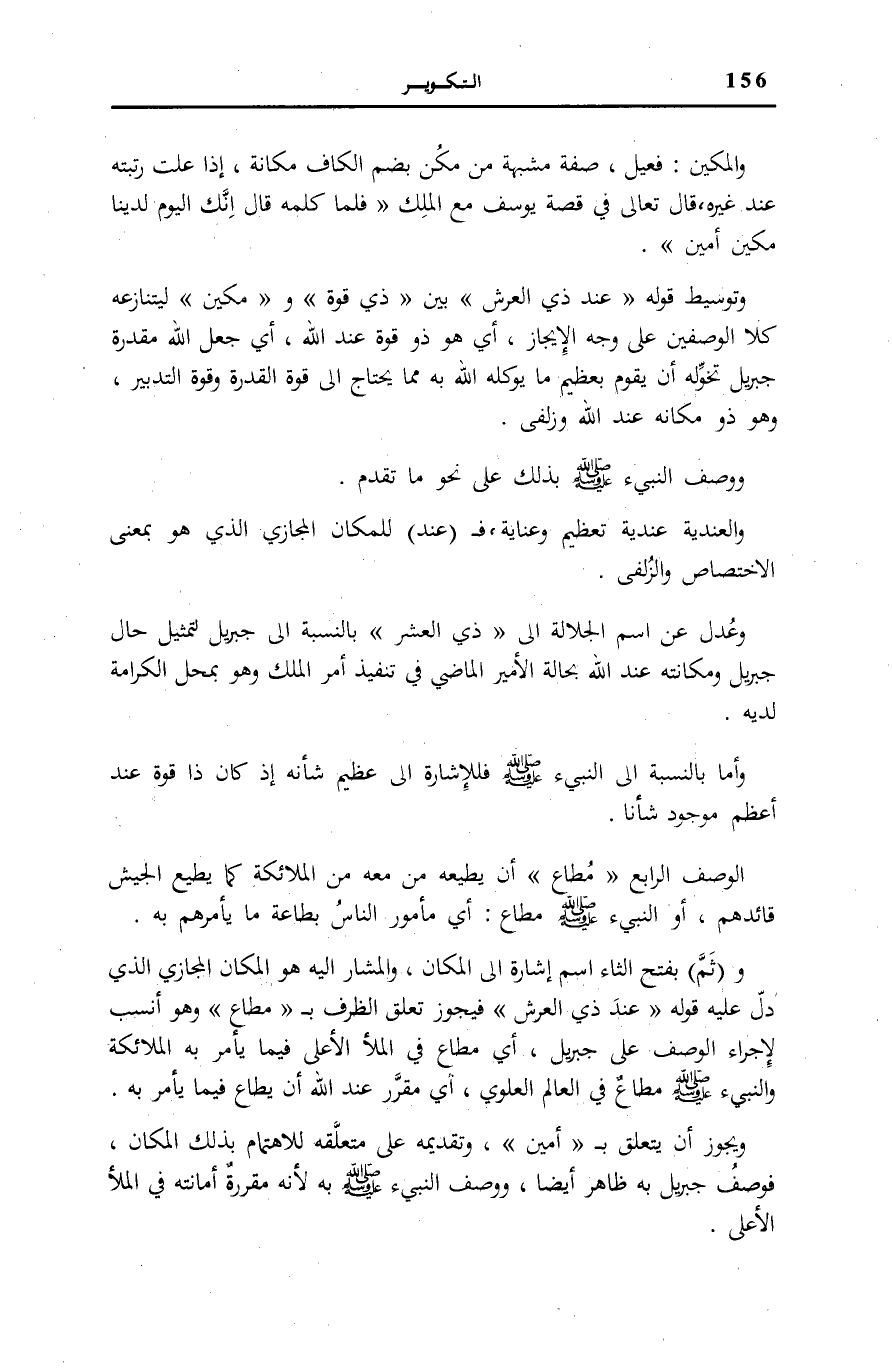 156
التكوير
والمكين : فعيل ، صفة مشبهة من مكُن بضم الكاف مكانة ، إذا علت رتبته
عند غيره،قال تعالى في قصة يوسف مع الملِك « فلما كلمه قال إنَّك اليوم لدينا
مكين أمين » .
وتوسيط قوله « عند ذي العرش » بين « ذي قوة » و « مكين » ليتنازعه
كلا الوصفين على وجه الإيجاز ، أي هو ذو قوة عند الله ، أي جعل الله مقدرة
جبريل تخوِّله أن يقوم بعظيم ما يوكله الله به مما يحتاج الى قوة القدرة وقوة التدبير ،
وهو ذو مكانه عند الله وزلفى .
ووصف النبيء ﷺ بذلك على نحو ما تقدم .
والعندية عندية تعظيم وعناية،فـ (عند) للمكان المجازي الذي هو بمعنى
الاختصاص والزُلفى .
وعُدل عن اسم الجلالة الى « ذي العشر » بالنسبة الى جبريل لتمثيل حال
جبريل ومكانته عند الله بحالة الأمير الماضي في تنفيذ أمر الملك وهو بمحل الكرامة
لديه .
وأما بالنسبة الى النبيء ﷺ فللإشارة الى عظيم شأنه إذ كان ذا قوة عند
أعظم موجود شأنا .
الوصف الرابع « مُطاع » أن يطيعه من معه من الملائكة كما يطيع الجيش
قائدهم ، أو النبيء ﷺ مطاع : أي مأمور الناسُ بطاعة ما يأمرهم به .
و (ثَمَّ) بفتح الثاء اسم إشارة الى المكان ، والمشار اليه هو المكان المجازي الذي
دلّ عليه قوله « عندَ ذي العرش » فيجوز تعلق الظرف بـ « مطاع » وهو أنسب
لإجراء الوصف على جبريل ، أي مطاع في الملأ الأعلى فيما يأمر به الملائكة
والنبيء ﷺ مطاعٌ في العالم العلوي ، أي مقرَّر عند الله أن يطاع فيما يأمر به .
ويجوز أن يتعلق بـ « أمين » ، وتقديمه على متعلَّقه للاهتمام بذلك المكان ،
فوصفُ جبريل به ظاهر أيضا ، ووصف النبيء ﷺ به لأنه مقررةٌ أمانته في الملأ
الأعلى .